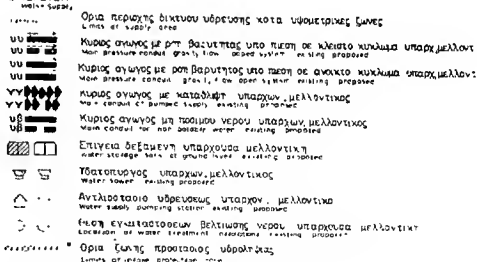 Water Supply
Όρια περιοχης δικτυου υδρευσης κατα υψομετρικες ζωνες
Limits of supply area
UU Κυριος αγωγος με ροη βαρυτητας υπο πιεση σε κλειστο κυκλωμα υπαρχ, μελλοντ
Main pressure conduit gravity flow system existing proposed
UU Κυριος αγωγος με ροη βαρυτητος υπο πιεση σε ανοικτο κυκλωμα υπαρχ, μελλον
Main pressure conduit gravity flow open system existing proposed
YY Κυριος αγωγος με καταθλιψη υπαρχων, μελλοντικος
Main conduit of pumped supply existing proposed
Uβ Κυριος αγωγος μη ποσιμου νερου υπαρχων, μελλοντικος
Main conduit for non potable water existing proposed
Επιγεια δεξαμενη υπαρχουσα μελλοντικη
Water storage tank at ground level existing proposed
Υδατοπυργος υπαρχων, μελλοντικος
Water tower existing proposed
Αντλιοστασιο υδρευσεως υπαρχον, μελλοντικο
Water supply pumping station existing proposed
Θεση εγκαταστασεων βελτιωσης νερου υπαρχουσα μελλοντικη
Location of water treatment existing
Ορια ζωνης προστασιας υδροληψιας
Limits of intake protection zone